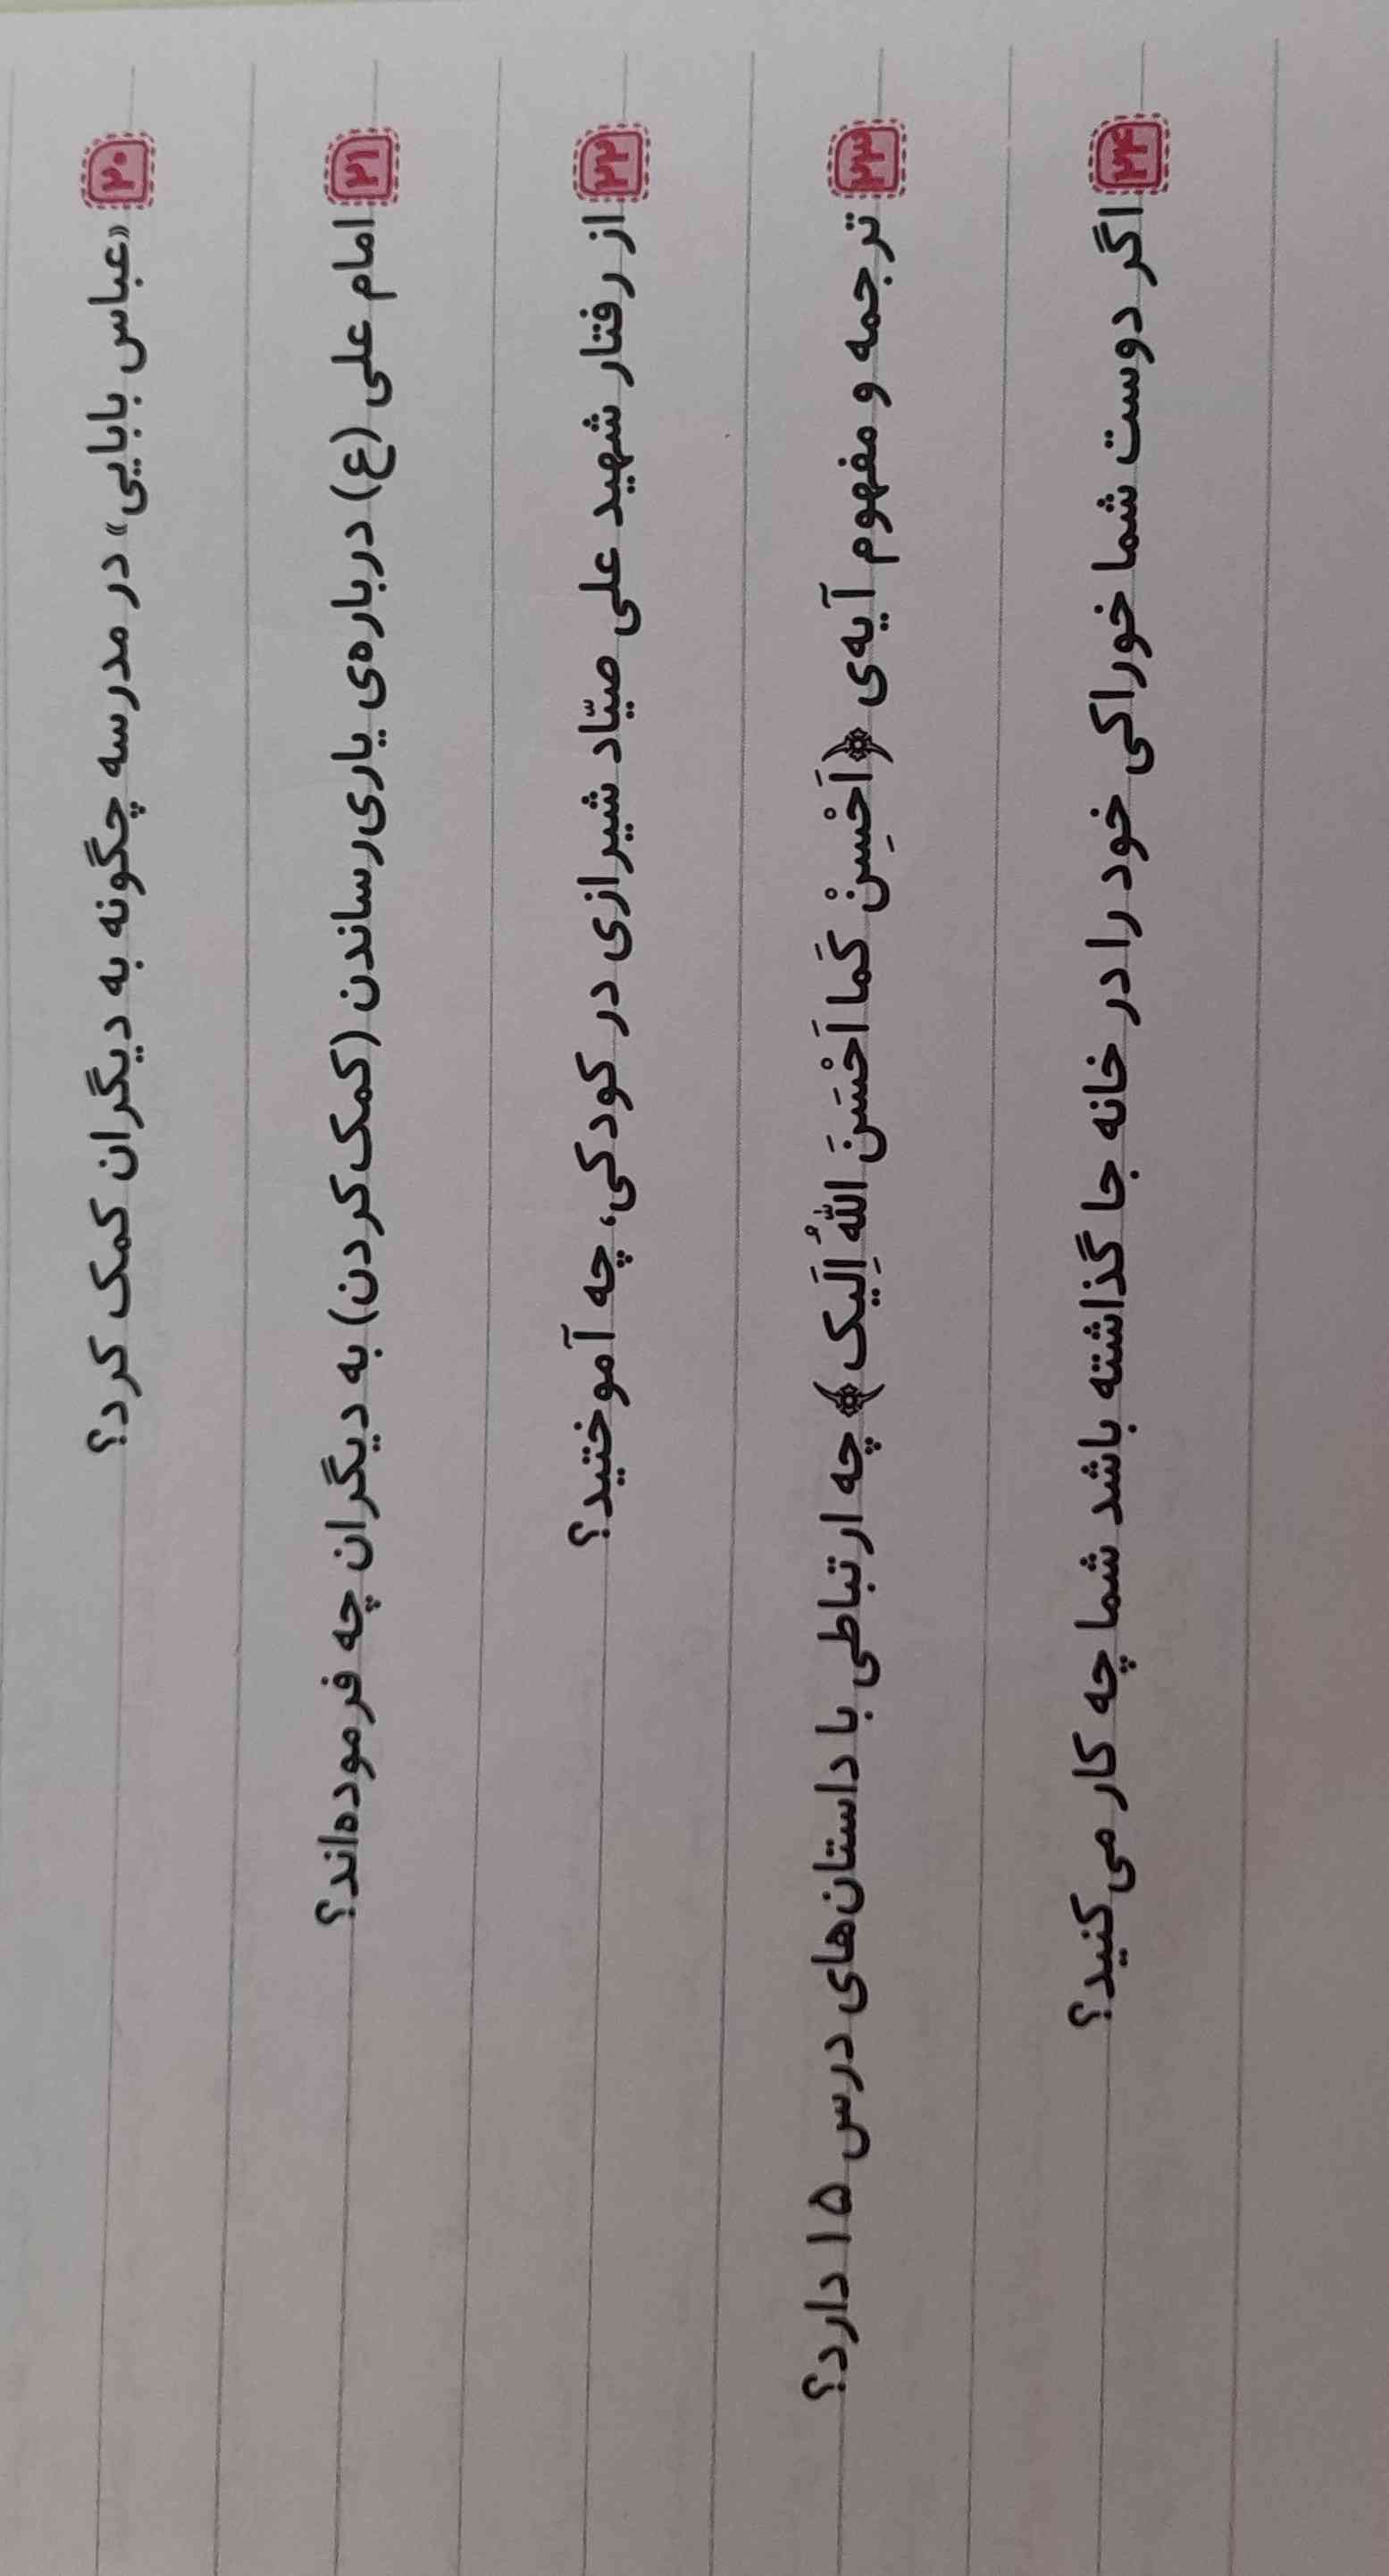 ۲۰ «عباس بابایی» در مدرسه چگونه به دیگران کمک کرد؟
۲۱ امام علی (ع) درباره‌ی یاری‌رساندن (کمک‌کردن) به دیگران چه فرموده‌اند؟
۲۲ از رفتار شهید علی صیّاد شیرازی در کودکی، چه آموختید؟
۲۳ ترجمه و مفهوم آیه‌ی ﴿اَحْسِنْ کَما اَحْسَنَ اللهُ اِلَیک﴾ چه ارتباطی با داستان‌های درس ۱۵ دارد؟
۲۴ اگر دوست شما خوراکی خود را در خانه جا گذاشته باشد شما چه کار می‌کنید؟